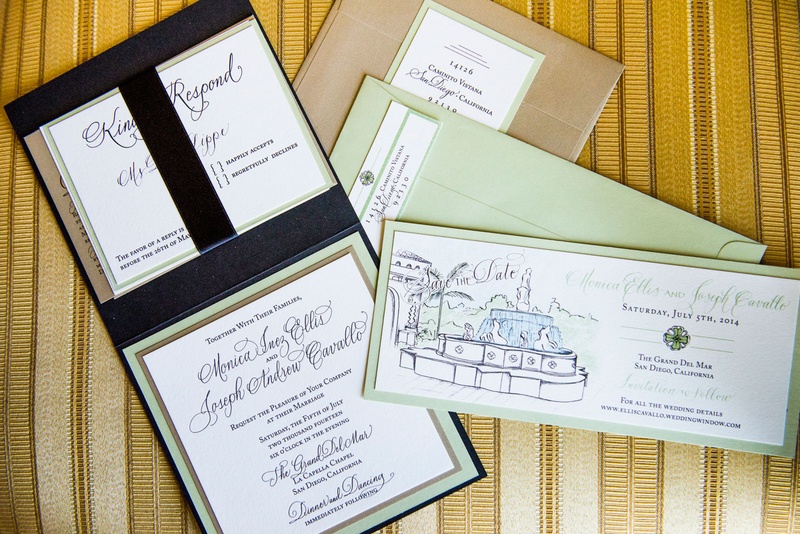 Kin Respond
Ms. lippe
[ ] happily accepts
[ ] regretfully declines
The favor of a reply is
before the 26th of Ma
Together With Their Families,
Monica Inez Ellis
and
Joseph Andrew Cavallo
Request the Pleasure of Your Company
at their Marriage
Saturday, the Fifth of July
two thousand fourteen
six o'clock in the evening
The Grand Del Mar
La Capella Chapel
San Diego, California
Dinner and Dancing
immediately following
14126
Caminito Vistana
San Diego, California
92130
14126
Caminito Vistana
San Diego, California
92130
Save the Date
Monica Ellis and Joseph Cavallo
Saturday, July 5th, 2014
The Grand Del Mar
San Diego, California
Invitation to Follow
For all the wedding details
www.elliscavallo.weddingwindow.com